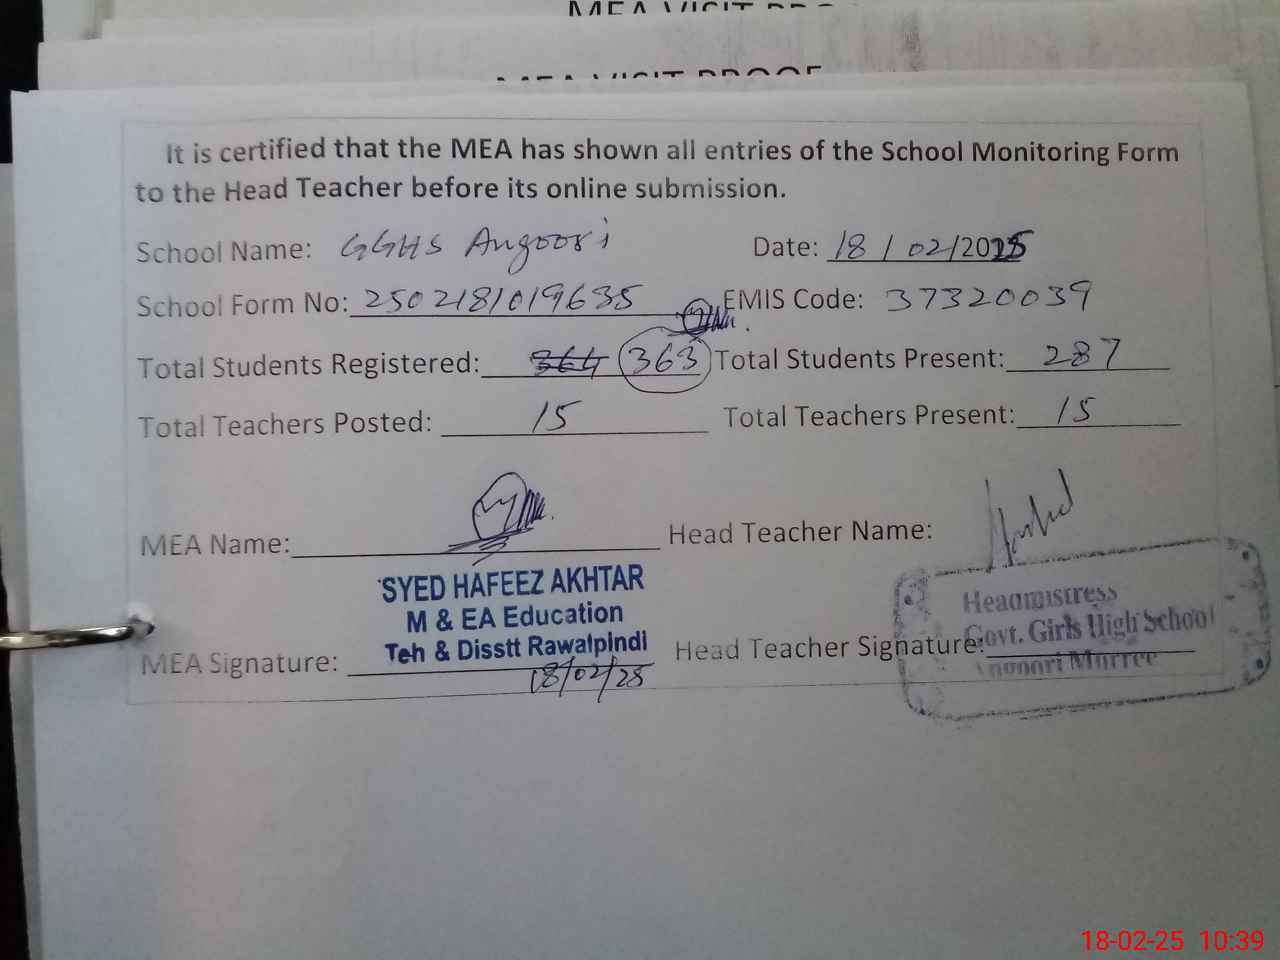 MEA VISIT
MEA VISIT PROOF
It is certified that the MEA has shown all entries of the School Monitoring Form
to the Head Teacher before its online submission.
School Name: GGHS Angoori Date: 18/02/2025
School Form No: 2502181019635 EMIS Code: 37320039
Total Students Registered: 364 363 Total Students Present: 287
Total Teachers Posted: 15 Total Teachers Present: 15
MEA Name: Head Teacher Name:
SYED HAFEEZ AKHTAR
M & EA Education
Teh & Disstt Rawalpindi
MEA Signature: 18/02/25
Head Teacher Signature:
Headmistress
Govt. Girls High School
Angoori Murree
18-02-25 10:39